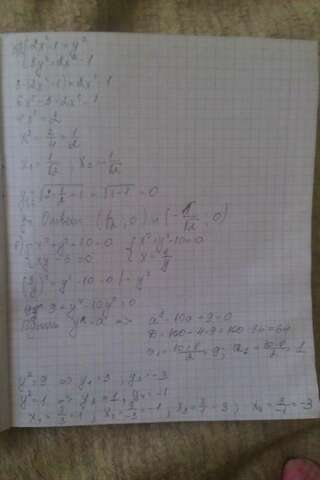 2x²-1=y²
3y²=2x²-1
3(2x²-1)=2x²-1
6x²-3=2x²-1
4x²=2
x²=2/4=1/2
x₁=1/√2; x₂=-1/√2
y=√(2·1/2-1)=√(1-1)=0
Ответ (1/√2, 0) и (-1/√2, 0)
x²+y²-10=0 { x²+y²-10=0
xy-3=0 { x=3/y
(3/y)²+y²-10=0 | · y²
9+y⁴-10y²=0
y²=a => a²-10a+9=0
D=100-4·9=100-36=64
a₁=(10+8)/2=9; a₂=(10-8)/2=1
y²=9 => y₁=3; y₂=-3
y²=1 => y₃=1; y₄=-1
x₁=3/3=1; x₂=3/-3=-1; x₃=3/1=3; x₄=3/-1=-3